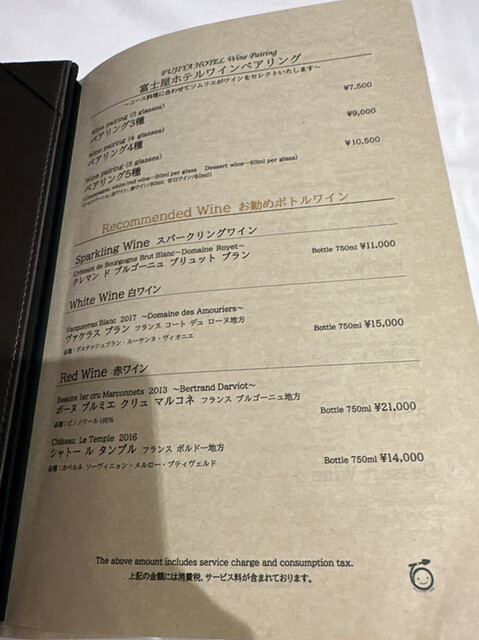 FUJIYA HOTEL Wine Pairing
富士屋ホテルワインペアリング
～コース料理に合わせてソムリエがワインをセレクトいたします～
Wine pairing (3 glasses)
ペアリング3種 ¥7,500
Wine pairing (4 glasses)
ペアリング4種 ¥9,000
Wine pairing (5 glasses)
ペアリング5種 ¥10,500
(Champagne, white/red wine—80ml per glass Dessert wine—60ml per glass)
(シャンパーニュ, 白ワイン, 赤ワイン/80ml 甘口ワイン/60ml)
Recommended Wine お勧めボトルワイン
Sparkling Wine スパークリングワイン
Crémant de Bourgogne Brut Blanc～Domaine Royet～
クレマン ド ブルゴーニュ ブリュット ブラン Bottle 750ml ¥11,000
White Wine 白ワイン
Vacqueyras Blanc 2017 ～Domaine des Amouriers～
ヴァケラス ブラン フランス コート デュ ローヌ地方 Bottle 750ml ¥15,000
品種：グルナッシュブラン・ルーサンヌ・ヴィオニエ
Red Wine 赤ワイン
Beaune 1er cru Marconnets 2013 ～Bertrand Darviot～
ボーヌ プルミエ クリュ マルコネ フランス ブルゴーニュ地方 Bottle 750ml ¥21,000
品種：ピノノワール100%
Château Le Temple 2016
シャトー ル タンプル フランス ボルドー地方 Bottle 750ml ¥14,000
品種：カベルネ ソーヴィニョン・メルロー・プティヴェルド
The above amount includes service charge and consumption tax.
上記の金額には消費税、サービス料が含まれております。